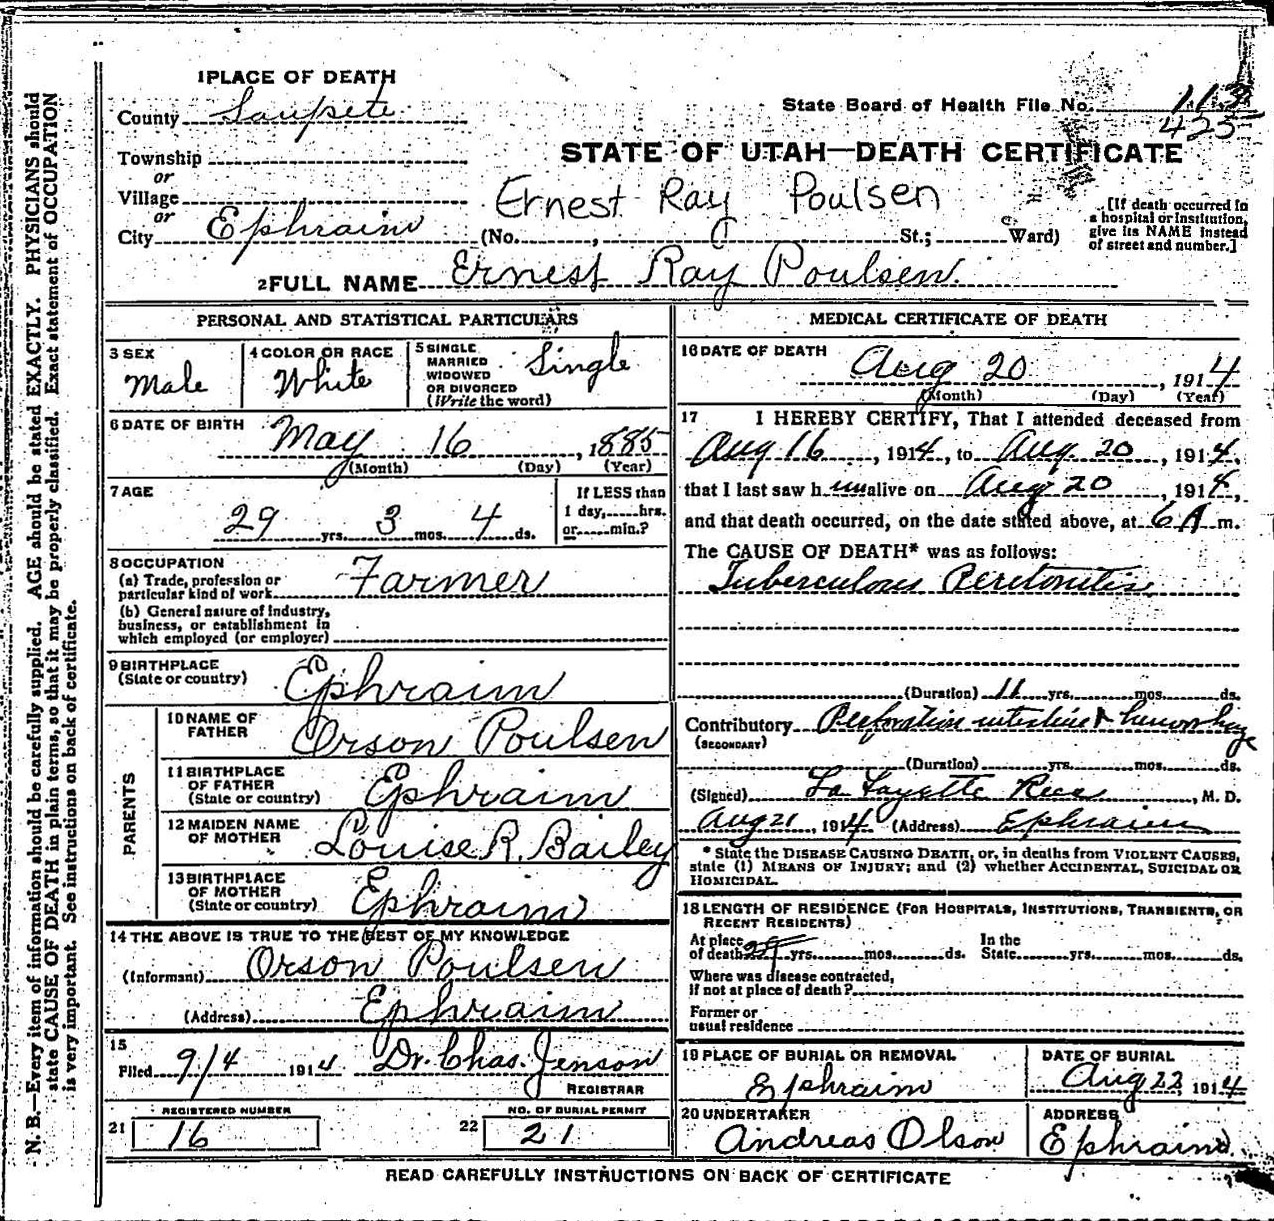 1 PLACE OF DEATH
County Sanpete
State Board of Health File No. 113
425
Township
or
Village
or
City Ephraim
STATE OF UTAH—DEATH CERTIFICATE
Ernest Ray Poulsen
(No. , St.; Ward)
[If death occurred in
a hospital or institution,
give its NAME instead
of street and number.]
2 FULL NAME Ernest Ray Poulsen.
PERSONAL AND STATISTICAL PARTICULARS
3 SEX
Male
4 COLOR OR RACE
White
5 SINGLE
MARRIED
WIDOWED
OR DIVORCED
(Write the word)
Single
6 DATE OF BIRTH
May 16, 1885
(Month) (Day) (Year)
7 AGE
29 yrs. 3 mos. 4 ds.
If LESS than
1 day, hrs.
or min.?
8 OCCUPATION
(a) Trade, profession or
particular kind of work Farmer
(b) General nature of industry,
business, or establishment in
which employed (or employer)
9 BIRTHPLACE
(State or country) Ephraim
PARENTS
10 NAME OF
FATHER Orson Poulsen
11 BIRTHPLACE
OF FATHER
(State or country) Ephraim
12 MAIDEN NAME
OF MOTHER Louise R. Bailey
13 BIRTHPLACE
OF MOTHER
(State or country) Ephraim
14 THE ABOVE IS TRUE TO THE BEST OF MY KNOWLEDGE
(Informant) Orson Poulsen
(Address) Ephraim
15
Filed 9/4 1914 Dr. Chas. Jenson
REGISTRAR
REGISTERED NUMBER
21 16
NO. OF BURIAL PERMIT
22 21
MEDICAL CERTIFICATE OF DEATH
16 DATE OF DEATH
Aug 20, 1914
(Month) (Day) (Year)
17 I HEREBY CERTIFY, That I attended deceased from
Aug 16, 1914, to Aug. 20, 1914,
that I last saw h im alive on Aug 20, 1914,
and that death occurred, on the date stated above, at 6 A m.
The CAUSE OF DEATH* was as follows:
Tuberculous Peritonitis
(Duration) 11 yrs. mos. ds.
Contributory Perforation intestine & hemorrhage
(SECONDARY)
(Duration) yrs. mos. ds.
(Signed) La Fayette Rees, M. D.
Aug 21 1914 (Address) Ephraim
* State the DISEASE CAUSING DEATH, or, in deaths from VIOLENT CAUSES,
state (1) MEANS OF INJURY; and (2) whether ACCIDENTAL, SUICIDAL OR
HOMICIDAL.
18 LENGTH OF RESIDENCE (FOR HOSPITALS, INSTITUTIONS, TRANSIENTS, OR
RECENT RESIDENTS)
At place
of death 29 yrs. mos. ds.
In the
State yrs. mos. ds.
Where was disease contracted,
if not at place of death?
Former or
usual residence
19 PLACE OF BURIAL OR REMOVAL
Ephraim
DATE OF BURIAL
Aug 22, 1914
20 UNDERTAKER
Andreas Olson
ADDRESS
Ephraim.
READ CAREFULLY INSTRUCTIONS ON BACK OF CERTIFICATE
N. B.—Every item of information should be carefully supplied. AGE should be stated EXACTLY. PHYSICIANS should
state CAUSE OF DEATH in plain terms, so that it may be properly classified. Exact statement of OCCUPATION
is very important. See instructions on back of certificate.